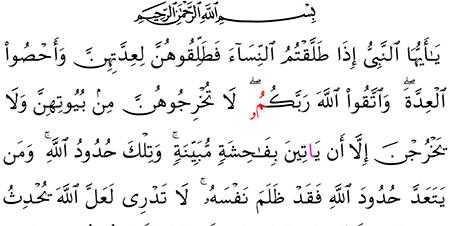 بِسْمِ ٱللَّهِ ٱلرَّحْمَٰنِ ٱلرَّحِيمِ
يَٰأَيُّهَا ٱلنَّبِىُّ إِذَا طَلَّقْتُمُ ٱلنِّسَآءَ فَطَلِّقُوهُنَّ لِعِدَّتِهِنَّ وَأَحْصُوا۟
ٱلْعِدَّةَ ۖ وَٱتَّقُوا۟ ٱللَّهَ رَبَّكُمُۥ ۖ لَا تُخْرِجُوهُنَّ مِنۢ بُيُوتِهِنَّ وَلَا
يَخْرُجْنَ إِلَّا أَن يَاتِينَ بِفَٰحِشَةٍ مُّبَيِّنَةٍ ۚ وَتِلْكَ حُدُودُ ٱللَّهِ ۚ وَمَن
يَتَعَدَّ حُدُودَ ٱللَّهِ فَقَدْ ظَلَمَ نَفْسَهُۥ ۚ لَا تَدْرِى لَعَلَّ ٱللَّهَ يُحْدِثُ